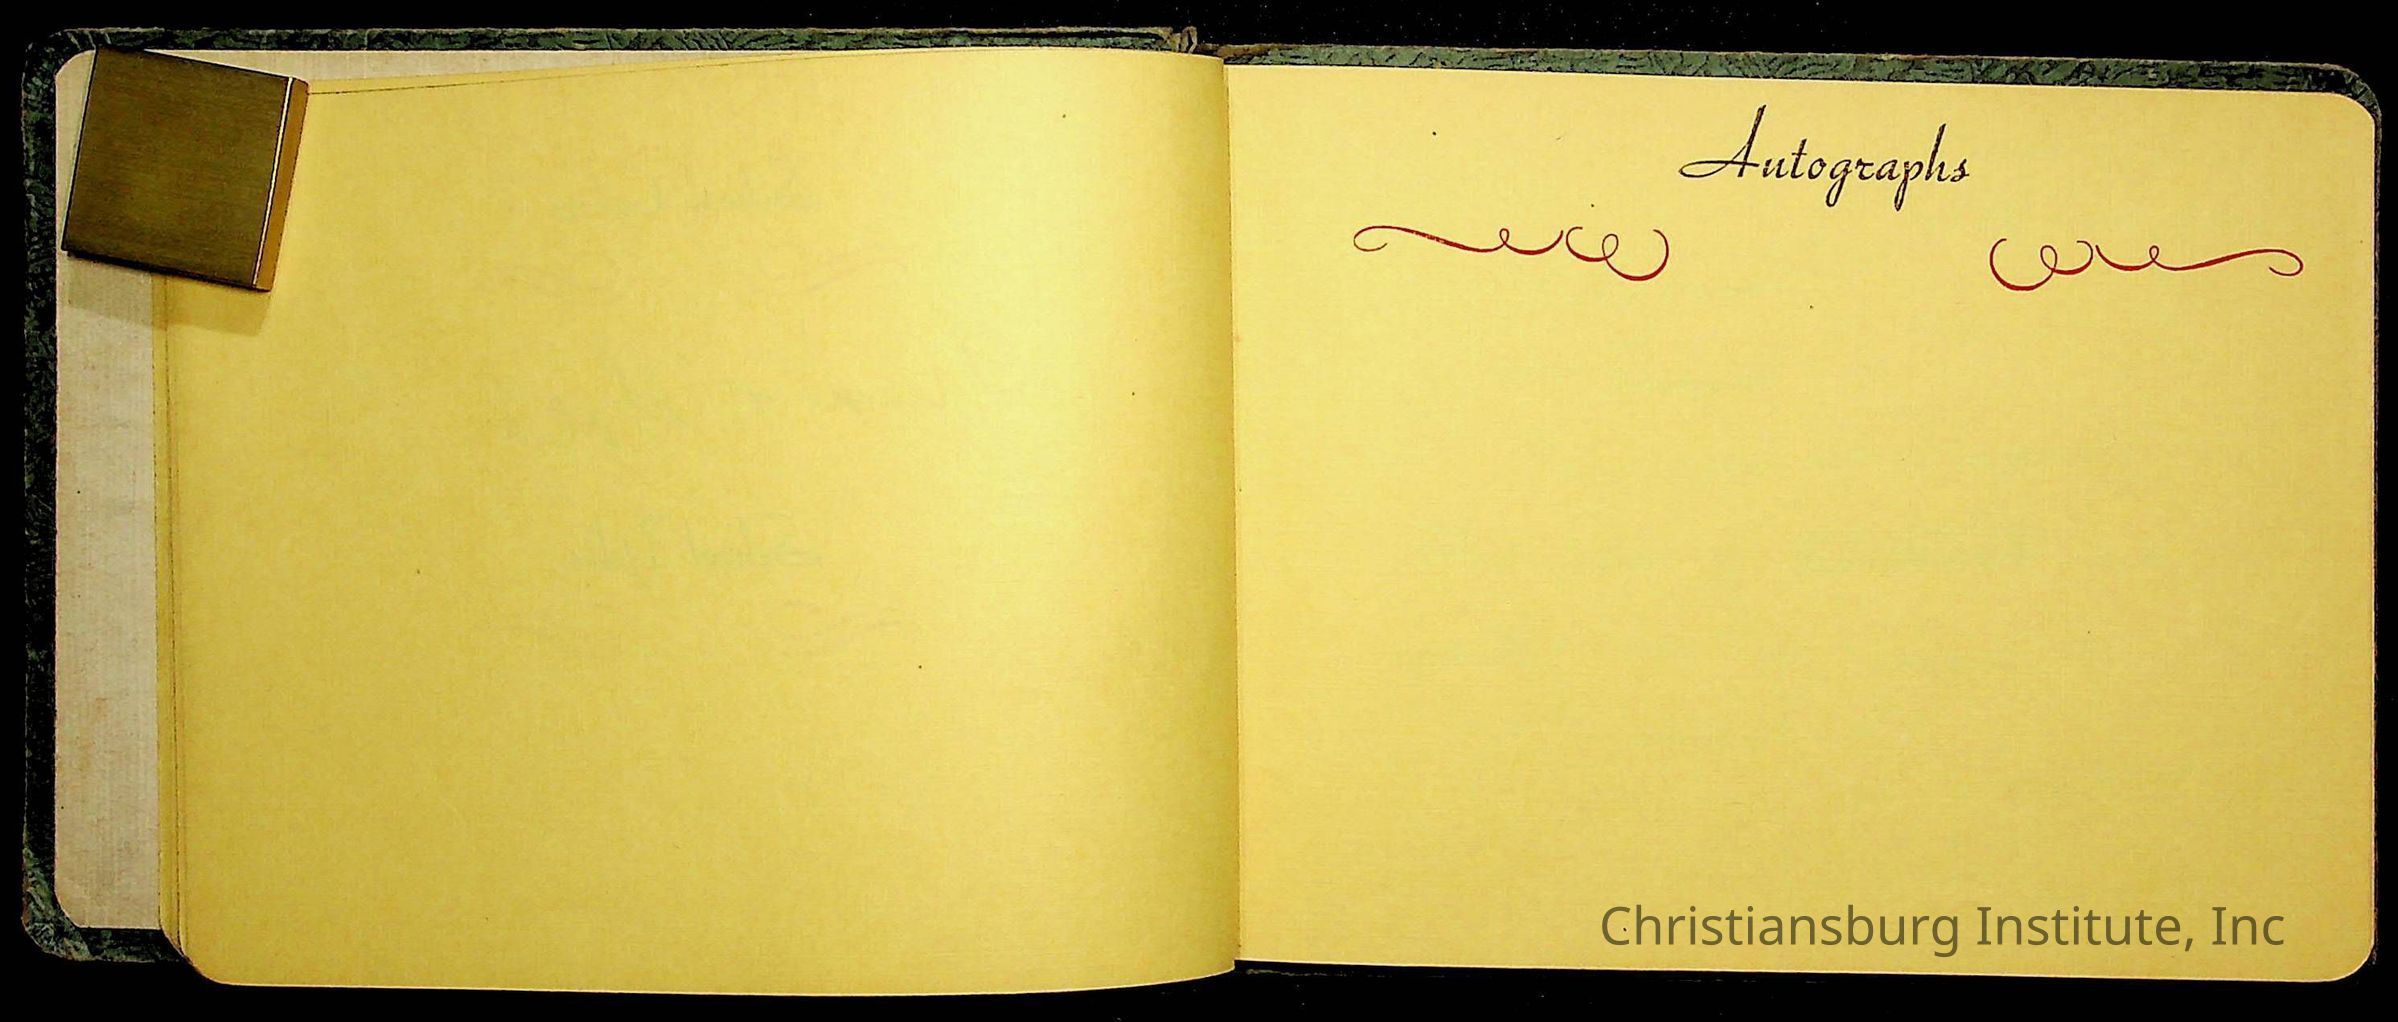 Autographs
Christiansburg Institute, Inc